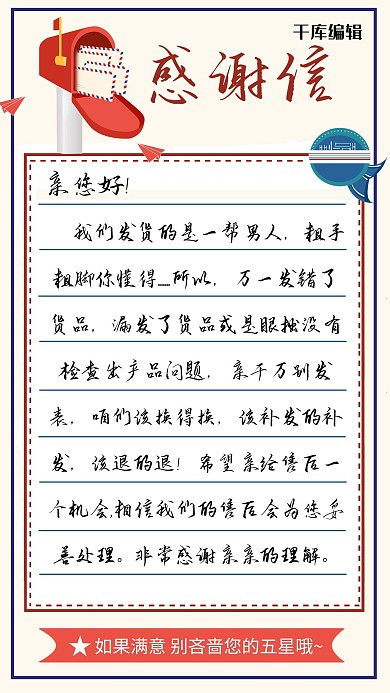 千库编辑
感谢信
亲您好!
我们发货的是一帮男人,粗手
粗脚你懂得……所以,万一发错了
货品,漏发了货品或是眼拙没有
检查出产品问题,亲千万别发
表,咱们该换得换,该补发的补
发,该退的退!希望亲给售后一
个机会,相信我们的售后会为您妥
善处理。非常感谢亲亲的理解。
如果满意 别吝啬您的五星哦~